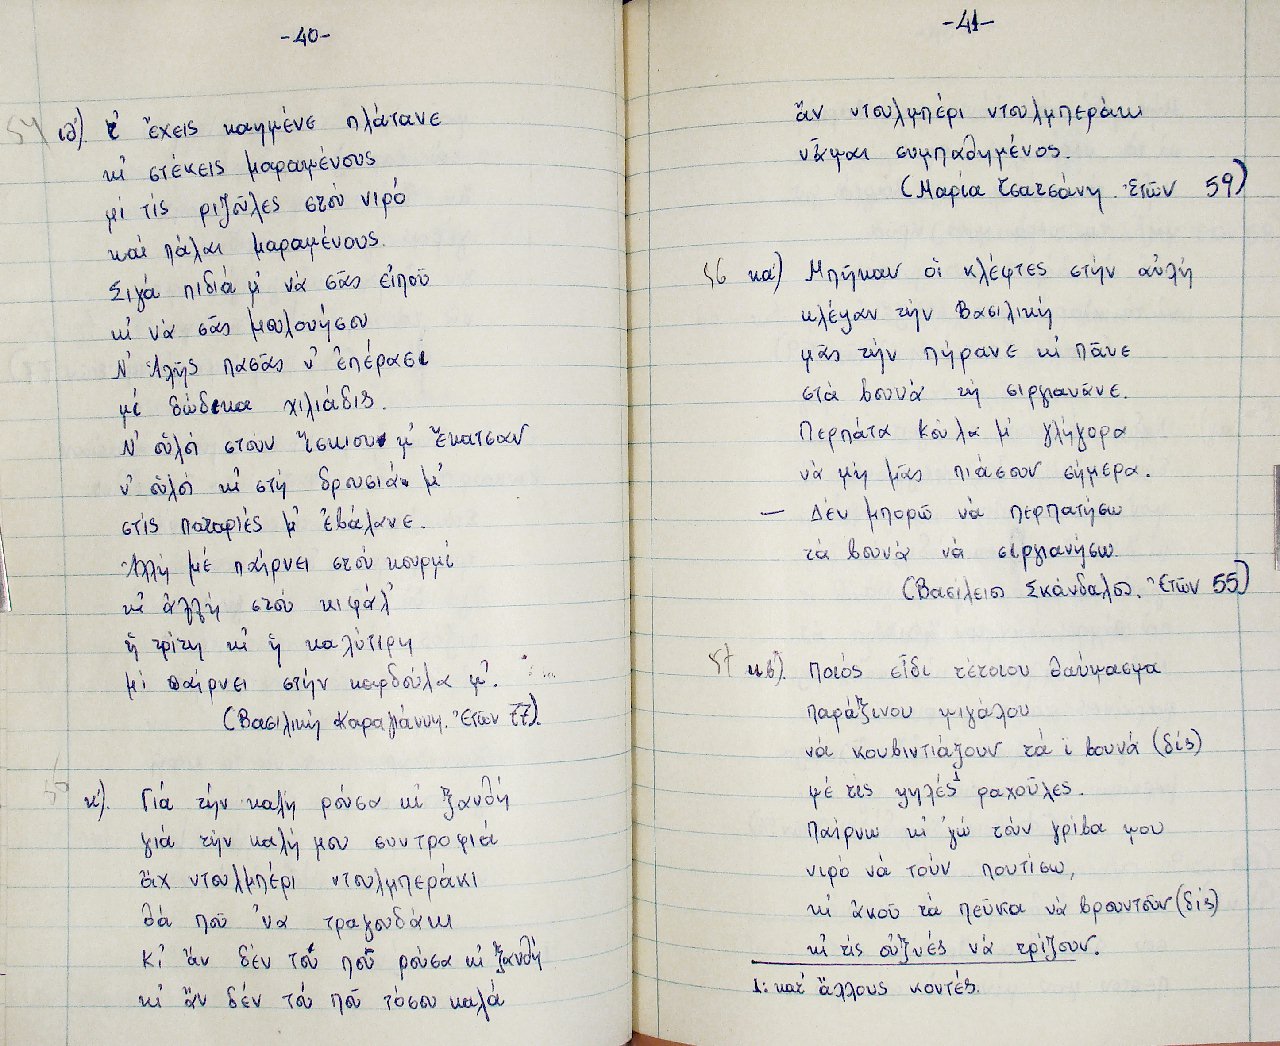 -40-
54 ιθ'). τ' ἔχεις καημένε πλάτανε
κι' στέκεις μαραμένους
μί τίς ριζοῦλες στού νιρό
καί πάλαι μαραμένους.
Σιγά πιδιά μ' νά σᾶς εἰποῦ
κι' νά σᾶς μουλουήσου
Ν' Ἀλῆς πασᾶς ν' ἐπέρασι
μέ δώδεκα χιλιάδις.
Ν' οὗλοι στούν ἴσκιου μ' ἔκατσαν
ν' οὗλοι κι' στή δρουσιά μ'
στίς παταριές μ' ἐβάλανε.
Ἀλλή μέ παίρνει στού κουρμί
κι' ἀλλή στού κιφάλ'
ἡ τρίτη κι' ἡ καλύτιρη
μί παίρνει στήν καρδούλα μ'.
(Βασιλική Καραγιάννη. Ἐτῶν 77).
55 κ'). Γιά τήν καλή ρούσα κι' ξανθή
γιά τήν καλή μου συντροφιά
ἄχ ντουλμπέρι ντουλμπεράκι
θά ποῦ ἕνα τραγουδάκι
Κι' ἄν δέν τού ποῦ ρούσα κι' ξανθή
κι' ἄν δέν τού ποῦ τόσου καλά
-41-
ἄν ντουλμπέρι ντουλμπεράκι
νἆμαι συμπαθημένος.
(Μαρία Τσατσάνη. Ἐτῶν 59)
56 κα') Μπῆκαν οἱ κλέφτες στήν αὐλή
κλέψαν τήν Βασιλική
μᾶς τήν πήρανε κι' πᾶνε
στά βουνά τή σιργιανᾶνε.
Περπάτα Κούλα μ' γλήγορα
νά μή μᾶς πιάσουν σήμερα.
— Δέν μπορῶ νά περπατήσω
τά βουνά νά σιργιανήσω
(Βασίλειος Σκάνδαλος. Ἐτῶν 55)
57 κβ'). Ποιός εἶδι τέτοιου θαύμασμα
παράξινου μιγάλου
νά κουβιντιάζουν τά ϊ βουνά (δίς)
μέ τις ψηλές¹ ραχοῦλες.
Παίρνω κι' 'γώ τούν γρίβα μου
νιρό νά τούν πουτίσω,
κι' ἀκοῦ τά πεῦκα νά βρουντοῦν (δίς)
κι' τις οὐξυές νά τρίζουν.
1: κατ' ἄλλους κοντές.